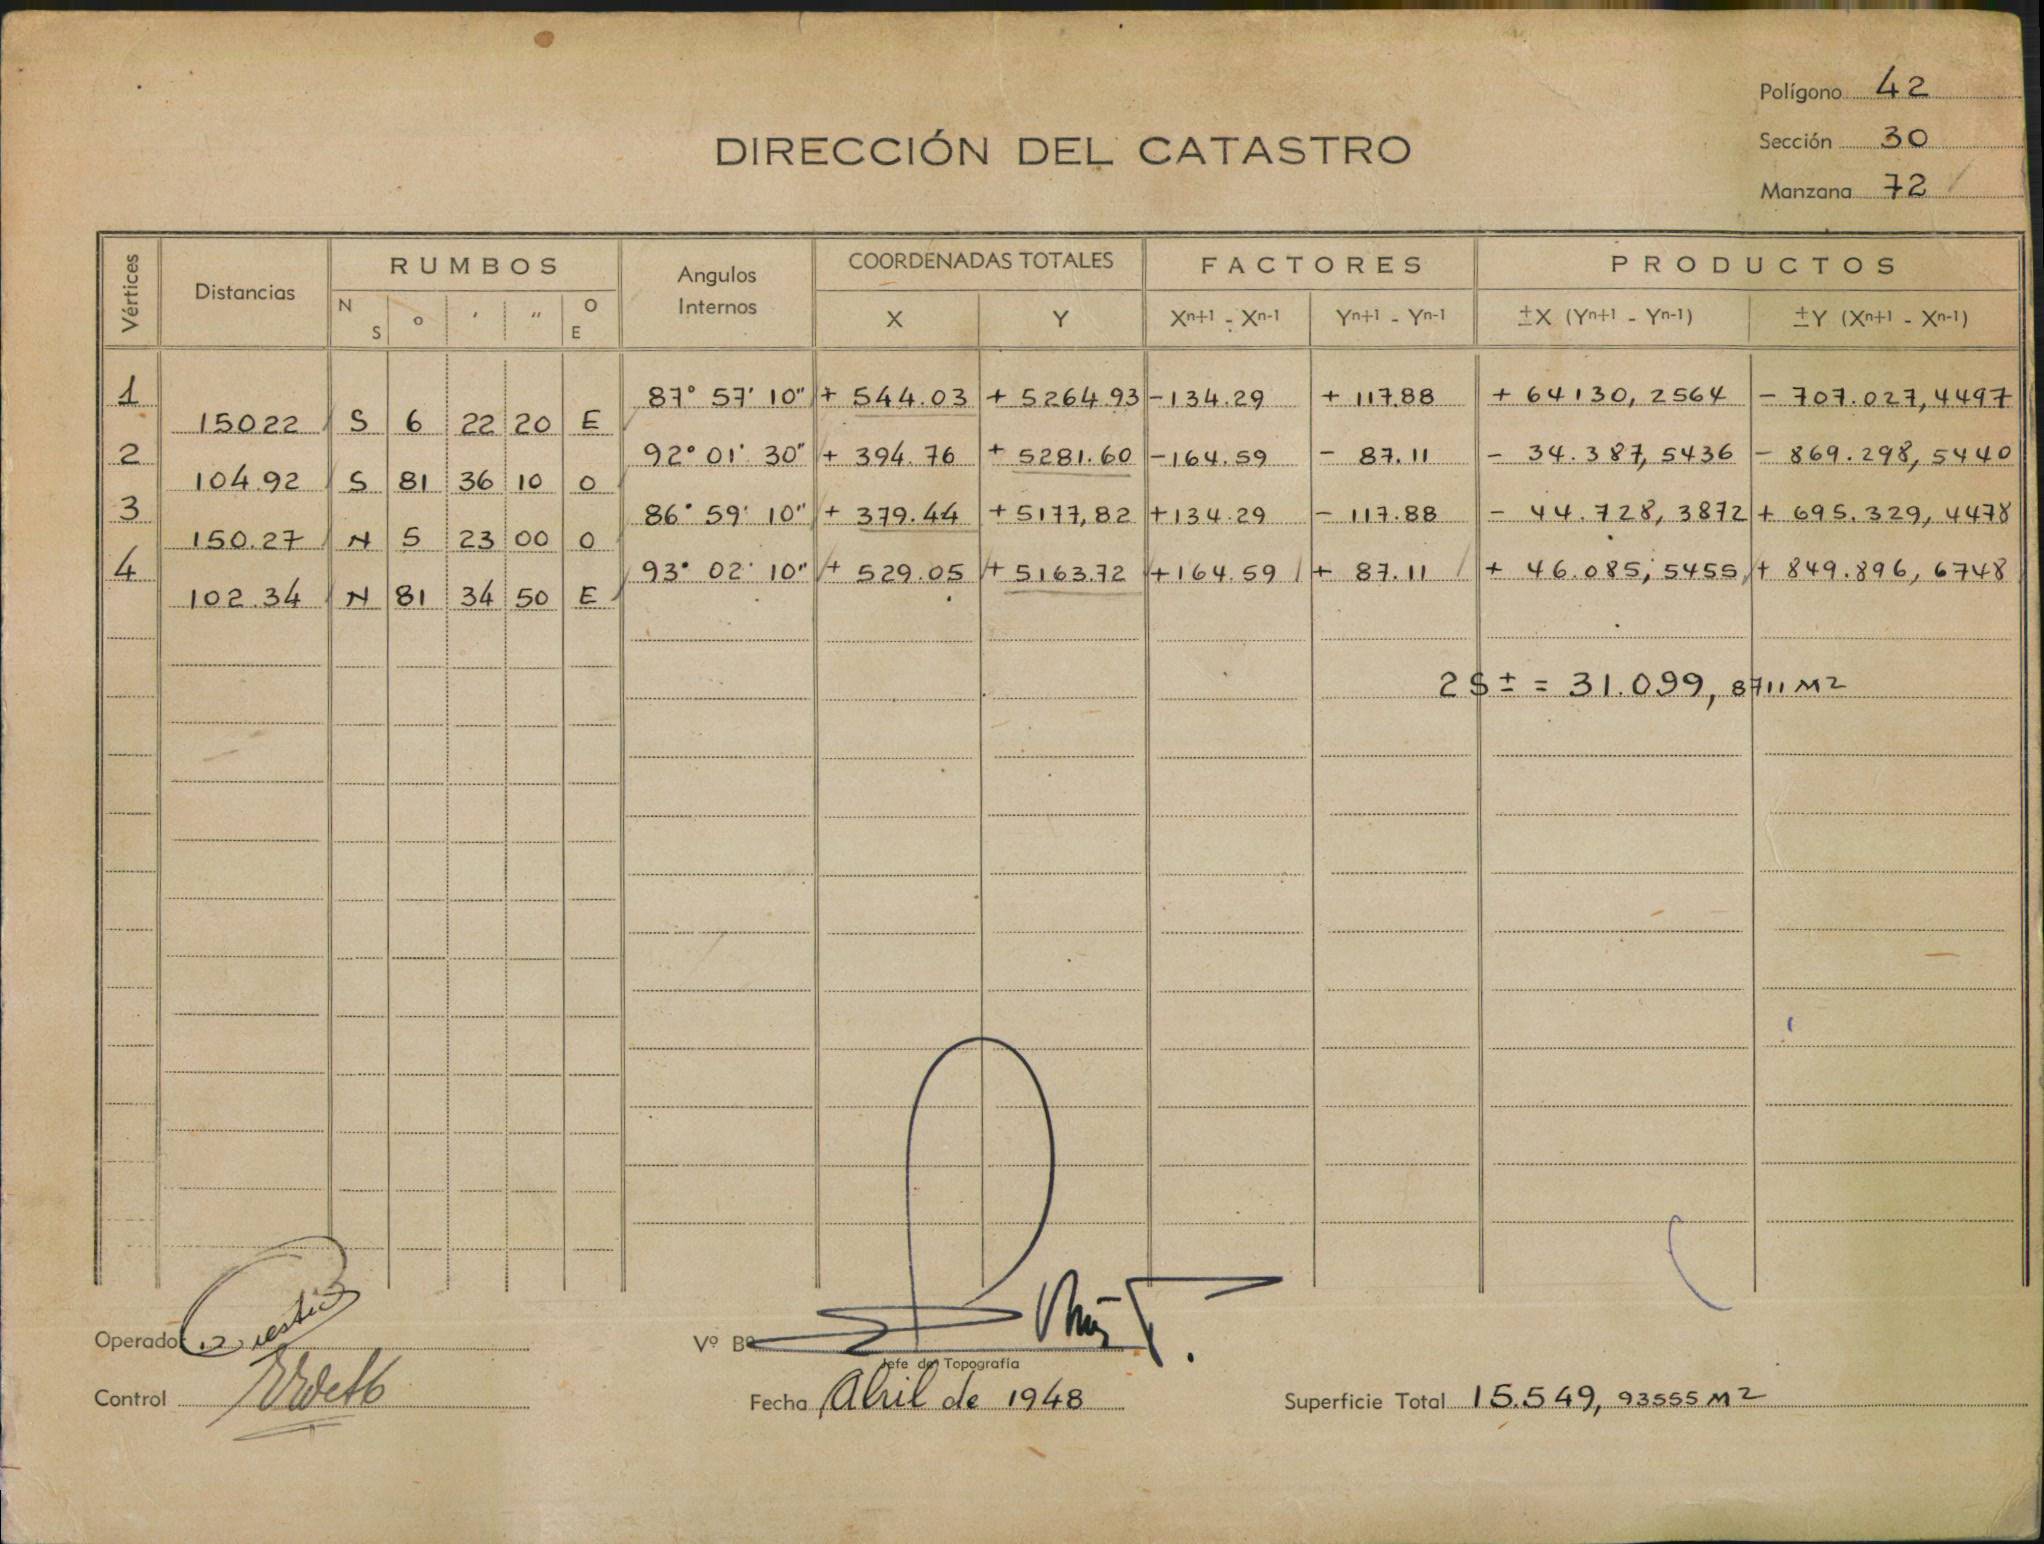 Polígono 42
DIRECCIÓN DEL CATASTRO
Sección 30
Manzana 72
Vértices Distancias RUMBOS Angulos Internos COORDENADAS TOTALES FACTORES PRODUCTOS
N S ° ′ ″ O E X Y Xn+1 - Xn-1 Yn+1 - Yn-1 ±X (Yn+1 - Yn-1) ±Y (Xn+1 - Xn-1)
1 87° 57' 10" + 544.03 + 5264.93 -134.29 + 117.88 + 64130,2564 - 707.027,4497
150.22 S 6 22 20 E
2 92° 01' 30" + 394.76 + 5281.60 -164.59 - 87.11 - 34.387,5436 - 869.298,5440
104.92 S 81 36 10 O
3 86° 59' 10" + 379.44 + 5177,82 +134.29 - 117.88 - 44.728,3872 + 695.329,4478
150.27 N 5 23 00 O
4 93° 02' 10" + 529.05 + 5163.72 +164.59 + 87.11 + 46.085,5455 + 849.896,6748
102.34 N 81 34 50 E
2S± = 31.099,8711 M2
Operador
Vº Bº
Jefe de Topografía
Control
Fecha Abril de 1948
Superficie Total 15.549,93555 M2